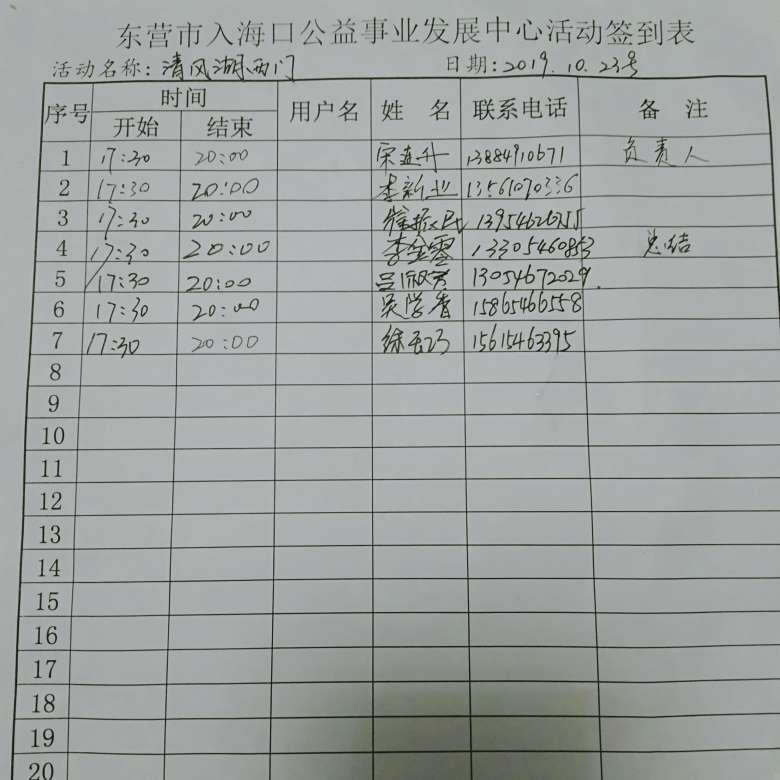 东营市入海口公益事业发展中心活动签到表
活动名称：清风湖西门 日期：2019.10.23号
序号 时间 用户名 姓 名 联系电话 备 注
开始 结束
1 17:30 20:00 宋连升 13884910671 负责人
2 17:30 20:00 李新业 13561070336
3 17:30 20:00 13954626255
4 17:30 20:00 李金霞 13305460853 总结
5 17:30 20:00 吕淑芳 13054672029.
6 17:30 20:00 吴学香 15865466558
7 17:30 20:00 15615463395
8
9
10
11
12
13
14
15
16
17
18
19
20